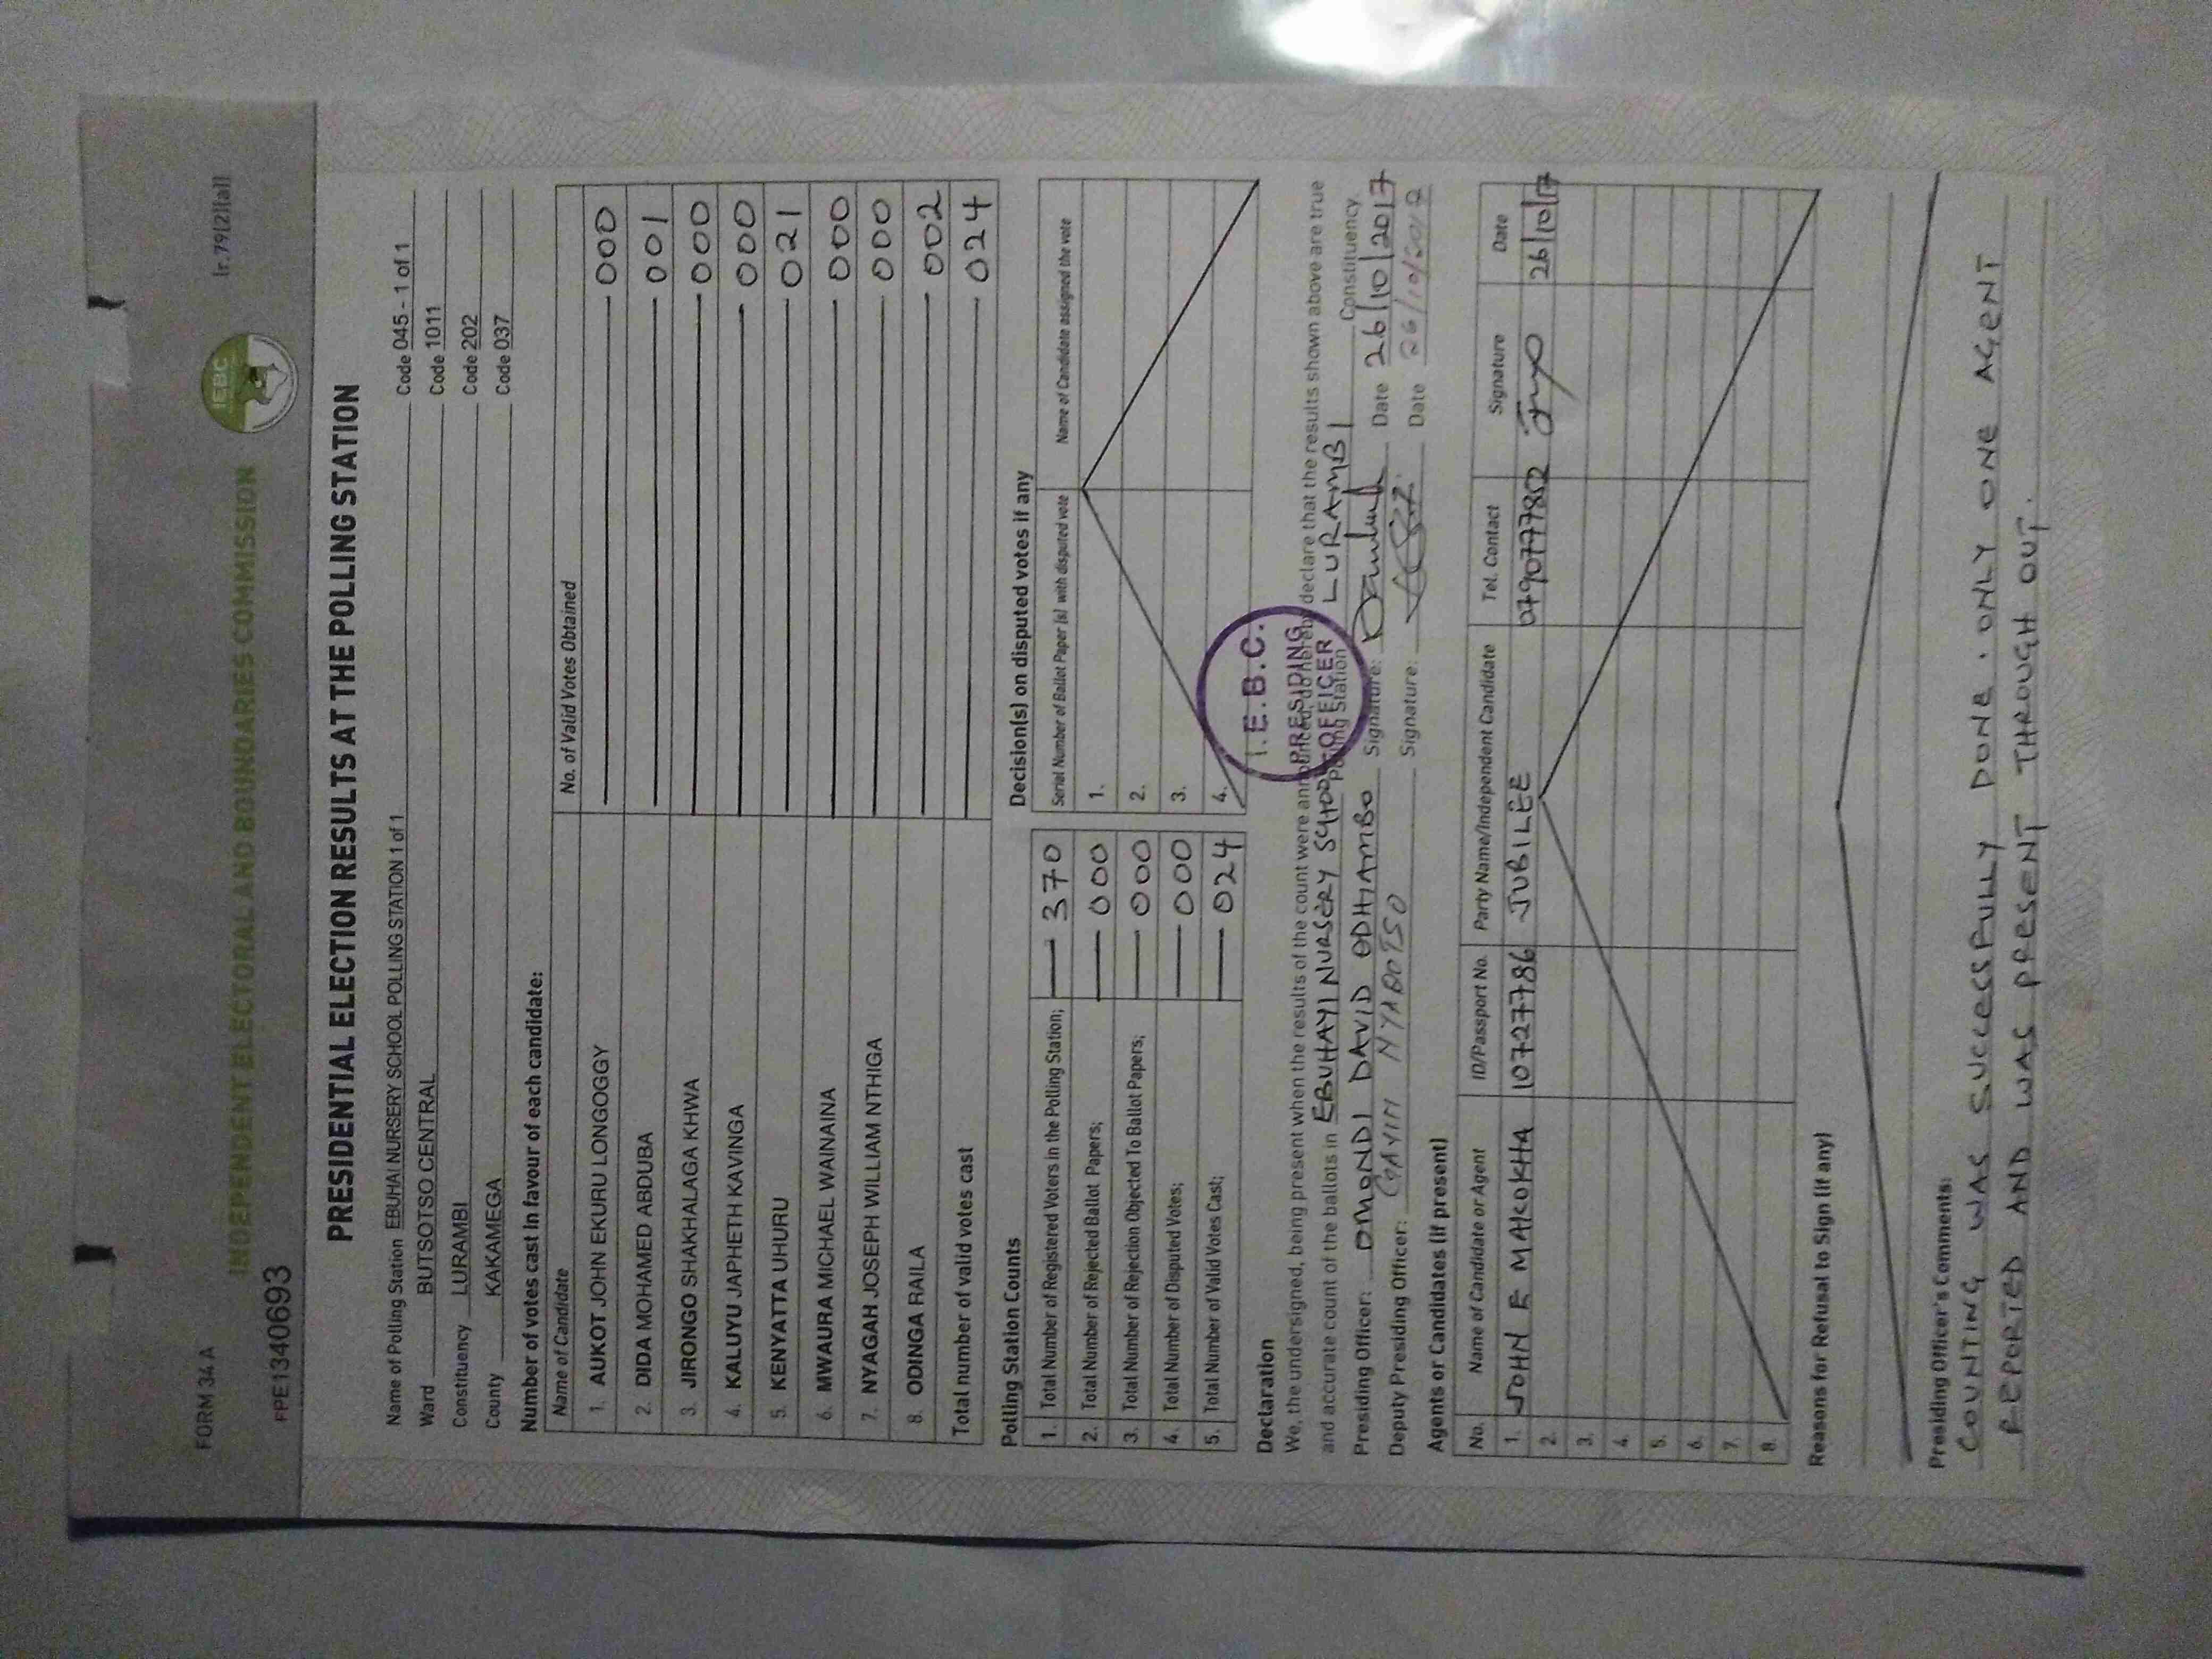 FORM 34 A
Ir.79(2)(a)
INDEPENDENT ELECTORAL AND BOUNDARIES COMMISSION
IEBC
FPE1340693
PRESIDENTIAL ELECTION RESULTS AT THE POLLING STATION
Name of Polling Station EBUHAI NURSERY SCHOOL POLLING STATION 1 of 1 Code 045 - 1 of 1
Ward BUTSOTSO CENTRAL Code 1011
Constituency LURAMBI Code 202
County KAKAMEGA Code 037
Number of votes cast in favour of each candidate:
Name of Candidate No. of Valid Votes Obtained
1. AUKOT JOHN EKURU LONGOGGY 000
2. DIDA MOHAMED ABDUBA 001
3. JIRONGO SHAKHALAGA KHWA 000
4. KALUYU JAPHETH KAVINGA 000
5. KENYATTA UHURU 021
6. MWAURA MICHAEL WAINAINA 000
7. NYAGAH JOSEPH WILLIAM NTHIGA 000
8. ODINGA RAILA 002
Total number of valid votes cast 024
Polling Station Counts
1. Total Number of Registered Voters in the Polling Station; 370
2. Total Number of Rejected Ballot Papers; 000
3. Total Number of Rejection Objected To Ballot Papers; 000
4. Total Number of Disputed Votes; 000
5. Total Number of Valid Votes Cast; 024
Decision(s) on disputed votes if any
Serial Number of Ballot Paper (s) with disputed vote Name of Candidate assigned the vote
1.
2.
3.
4.
I.E.B.C.
PRESIDING
OFFICER
Declaration
We, the undersigned, being present when the results of the count were announced, do hereby declare that the results shown above are true
and accurate count of the ballots in EBUHAYI NURSERY SCHOOL Polling Station LURAMBI Constituency.
Presiding Officer: OMONDI DAVID ODHIAMBO Signature: Date 26/10/2017
Deputy Presiding Officer: Signature: Date
Agents or Candidates (if present)
No. Name of Candidate or Agent ID/Passport No. Party Name/Independent Candidate Tel. Contact Signature Date
1. JOHN E MAKOKHA 10727786 JUBILEE 0790777852 26/10/17
2.
3.
4.
5.
6.
7.
8.
Reasons for Refusal to Sign (if any)
Presiding Officer's Comments:
COUNTING WAS SUCCESSFULLY DONE. ONLY ONE AGENT
REPORTED AND WAS PRESENT THROUGH OUT.